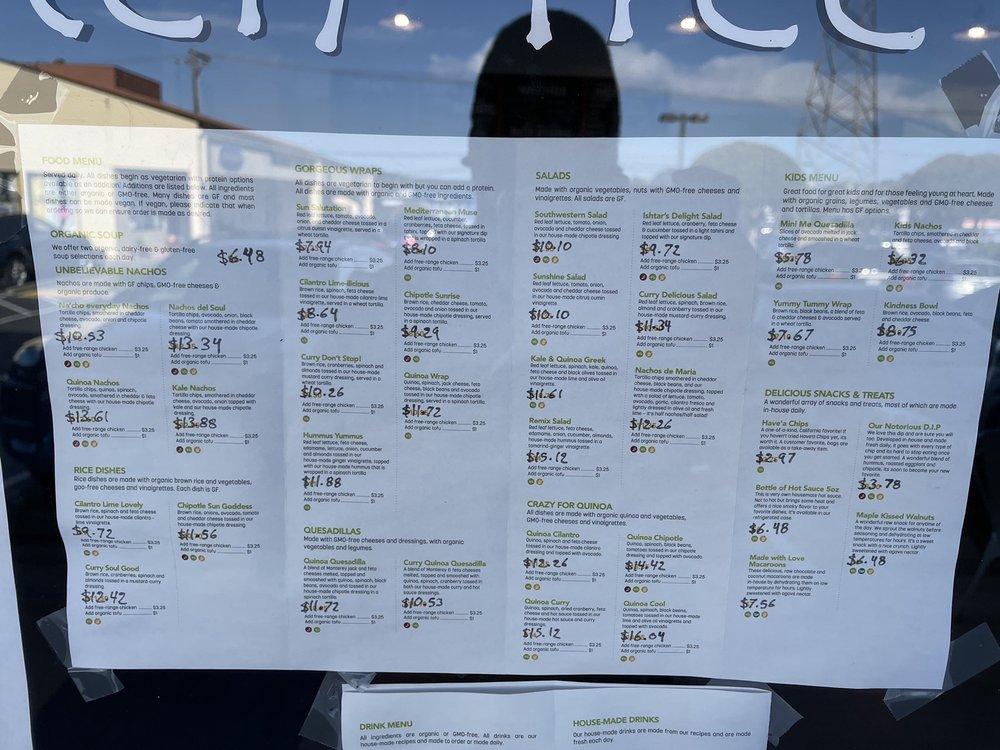 FOOD MENU
Served daily. All dishes begin as vegetarian with protein options
available as an addition. Additions are listed below. All ingredients
are either organic or GMO-free. Many dishes are GF and most
dishes can be made vegan. If vegan, please indicate that when
ordering so we can ensure order is made as desired.
ORGANIC SOUP
We offer two organic, dairy-free & gluten-free
soup selections each day.
$6.48
UNBELIEVABLE NACHOS
Nachos are made with GF chips, GMO-free cheeses &
organic produce.
Na'cho everyday Nachos
Tortilla chips, smothered in cheddar
cheese, avocado, onion and chipotle
dressing.
$10.53
Add free-range chicken ... $3.25
Add organic tofu ... $1
Nachos del Soul
Tortilla chips, avocado, onion, black
beans, tomato smothered in cheddar
cheese with our house-made chipotle
dressing.
$13.34
Add free-range chicken ... $3.25
Add organic tofu ... $1
Quinoa Nachos
Tortilla chips, quinoa, spinach,
avocado, smothered in cheddar & feta
cheese with our house-made chipotle
dressing.
$13.61
Add free-range chicken ... $3.25
Add organic tofu ... $1
Kale Nachos
Tortilla chips, smothered in cheddar
cheese, avocado, onion topped with
kale and our house-made chipotle
dressing.
$13.88
Add free-range chicken ... $3.25
Add organic tofu ... $1
RICE DISHES
Rice dishes are made with organic brown rice and vegetables,
gmo-free cheeses and vinaigrettes. Each dish is GF.
Cilantro Lime Lovely
Brown rice, spinach and feta cheese
tossed in our house-made cilantro-
lime vinaigrette.
$9.72
Add free-range chicken ... $3.25
Add organic tofu ... $1
Chipotle Sun Goddess
Brown rice, onions, avocado, tomato
and cheddar cheese tossed in our
house-made chipotle dressing.
$11.56
Add free-range chicken ... $3.25
Add organic tofu ... $1
Curry Soul Good
Brown rice, cranberries, spinach and
almonds tossed in a mustard-curry
dressing.
$12.42
Add free-range chicken ... $3.25
Add organic tofu ... $1
GORGEOUS WRAPS
All dishes are vegetarian to begin with but you can add a protein.
All dishes are made with organic and GMO-free ingredients.
Sun Salutation
Red leaf lettuce, tomato, avocado,
onion, and cheddar cheese tossed in a
citrus cumin vinaigrette, served in a
wheat tortilla.
$7.94
Add free-range chicken ... $3.25
Add organic tofu ... $1
Mediterranean Muse
Red leaf lettuce, cucumber,
cranberries, feta cheese, tossed in
tahini, with our signature dip
wrapped in a spinach tortilla
$8.10
Add free-range chicken ... $3.25
Add organic tofu ... $1
Cilantro Lime-ilicious
Brown rice, spinach, feta cheese
tossed in our house-made cilantro lime
vinaigrette, served in a wheat tortilla.
$8.64
Add free-range chicken ... $3.25
Add organic tofu ... $1
Chipotle Sunrise
Brown rice, cheddar cheese, tomato,
avocado and onion tossed in our
house-made chipotle dressing, served
in a spinach tortilla.
$9.29
Add free-range chicken ... $3.25
Add organic tofu ... $1
Curry Don't Stop!
Brown rice, cranberries, spinach and
almonds tossed in our house-made
mustard curry dressing, served in a
wheat tortilla.
$10.26
Add free-range chicken ... $3.25
Add organic tofu ... $1
Quinoa Wrap
Quinoa, spinach, jack cheese, feta
cheese, black beans and avocado
tossed in our house-made chipotle
dressing, served in a spinach tortilla.
$11.72
Add free-range chicken ... $3.25
Add organic tofu ... $1
Hummus Yummus
Red leaf lettuce, feta cheese,
edamame, lettuce, onion, cucumber
and almonds tossed in our
house-made ginger vinaigrette, topped
with our house-made hummus that is
wrapped in a spinach tortilla
$11.88
Add free-range chicken ... $3.25
Add organic tofu ... $1
QUESADILLAS
Made with GMO-free cheeses and dressings, with organic
vegetables and legumes.
Quinoa Quesadilla
A blend of Monterey jack and feta
cheeses melted, topped and
smothered with quinoa, spinach, black
beans, avocado and tossed in our
house-made chipotle dressing in a
spinach tortilla.
$11.72
Add free-range chicken ... $3.25
Add organic tofu ... $1
Curry Quinoa Quesadilla
A blend of Monterey & feta cheeses
melted, topped and smothered with
quinoa, spinach, cranberry tossed in
both our house-made curry and hot
sauce dressings.
$10.53
Add free-range chicken ... $3.25
Add organic tofu ... $1
SALADS
Made with organic vegetables, nuts with GMO-free cheeses and
vinaigrettes. All salads are GF.
Southwestern Salad
Red leaf lettuce, tomato, onion,
avocado, and cheddar cheese tossed
in our house-made chipotle dressing.
$10.10
Add free-range chicken ... $3.25
Add organic tofu ... $1
Ishtar's Delight Salad
Red leaf lettuce, feta cheese
& cucumber tossed in a light tahini and
topped with our signature dip.
$9.72
Add free-range chicken ... $3.25
Add organic tofu ... $1
Sunshine Salad
Red leaf lettuce, tomato, onion,
avocado and cheddar cheese tossed in
our house-made citrus cumin
vinaigrette.
$10.10
Add free-range chicken ... $3.25
Add organic tofu ... $1
Curry Delicious Salad
Red leaf lettuce, brown rice,
almond and cranberry tossed in our
house-made mustard-curry dressing.
$11.34
Add free-range chicken ... $3.25
Add organic tofu ... $1
Kale & Quinoa Greek
Red leaf lettuce, spinach, kale, quinoa,
feta cheese and black olives tossed in
our house made lime and olive
vinaigrette.
$11.61
Add free-range chicken ... $3.25
Add organic tofu ... $1
Nachos de Maria
Tortilla chips smothered in cheddar
cheese, black beans, and our
house-made chipotle dressing, topped
with a salad of lettuce, tomato,
avocado, garlic, cilantro fresca and
lightly dressed in olive oil and fresh
lime - it's half nachos/half salad!
$12.26
Add free-range chicken ... $3.25
Add organic tofu ... $1
Remix Salad
Red leaf lettuce, feta cheese,
edamame, onion, cucumber, almonds,
house-made hummus tossed in a
tamarind-ginger vinaigrette.
$15.12
Add free-range chicken ... $3.25
Add organic tofu ... $1
CRAZY FOR QUINOA
All dishes are made with organic quinoa and vegetables,
GMO-free cheeses and vinaigrettes.
Quinoa Cilantro
Quinoa, spinach and feta cheese
tossed in our house-made cilantro
dressing and topped with avocado.
$12.26
Add free-range chicken ... $3.25
Add organic tofu ... $1
Quinoa Chipotle
Quinoa, spinach, black beans,
tomatoes tossed in our house-made
chipotle dressing and topped
with avocado.
$14.42
Add free-range chicken ... $3.25
Add organic tofu ... $1
Quinoa Curry
Quinoa, spinach, dried cranberry, feta
cheese and hot sauce tossed in our
house-made hot sauce and curry
dressings.
$15.12
Add free-range chicken ... $3.25
Add organic tofu ... $1
Quinoa Cool
Quinoa, spinach, black beans,
tomatoes tossed in our house-made
lime and olive oil vinaigrette and
topped with avocado.
$16.04
Add free-range chicken ... $3.25
Add organic tofu ... $1
KIDS MENU
Great food for great kids and for those feeling young at heart. Made
with organic grains, legumes, vegetables and GMO-free cheeses
and tortillas. Menu has GF options.
Mini Me Quesadilla
Slices of avocado melted in jack
cheese and smothered in a wheat
tortilla.
$5.78
Add free-range chicken ... $3.25
Add organic tofu ... $1
Kids Nachos
Tortilla chips, smothered in cheddar
and feta cheese, avocado and black
$6.32
Add free-range chicken ... $3.25
Add organic tofu ... $1
Yummy Tummy Wrap
Brown rice, black beans, a blend of feta
& cheddar cheeses & avocado served
in a wheat tortilla.
$7.67
Add free-range chicken ... $3.25
Add organic tofu ... $1
Kindness Bowl
Brown rice, avocado, black beans, feta
and cheddar cheese.
$8.75
Add free-range chicken ... $3.25
Add organic tofu ... $1
DELICIOUS SNACKS & TREATS
A wonderful array of snacks and treats, most of which are made
in-house daily.
Have'a Chips
A one-of-a-kind, California favorite! If
you haven't tried Have'a Chips yet, its
worth it. A customer favorite. Bags are
available as a take-away item.
$2.97
Our Notorious D.I.P
We love this dip and are sure you will
too. Developed in house and made
fresh daily, it goes with every type of
chip and its hard to stop eating once
you get started. A wonderful blend of
hummus, roasted eggplant and
chipotle, its soon to become your new
favorite.
$3.78
Bottle of Hot Sauce Soz
This is very own housemade hot sauce.
Not to hot but brings some heat and
offers a nice smoky flavor to your
favorite dishes. It's available in our
refrigerated case.
$6.48
Maple Kissed Walnuts
A wonderful raw snack for anytime of
the day. We sprout the walnuts before
seasoning and dehydrating at low
temperatures for hours. It's a sweet
snack with pure crunch. Lightly
sweetened with agave nectar
$6.48
Made with Love
Macaroons
These delicious, raw chocolate and
coconut macaroons are made
in-house by dehydrating them on low
temperature for hours. Lightly
sweetened with agave nectar.
$7.56
DRINK MENU
All ingredients are organic or GMO-free. All drinks are our
house-made recipes and made to order or made daily.
HOUSE-MADE DRINKS
Our house-made drinks are made from our recipes and are made
fresh each day.